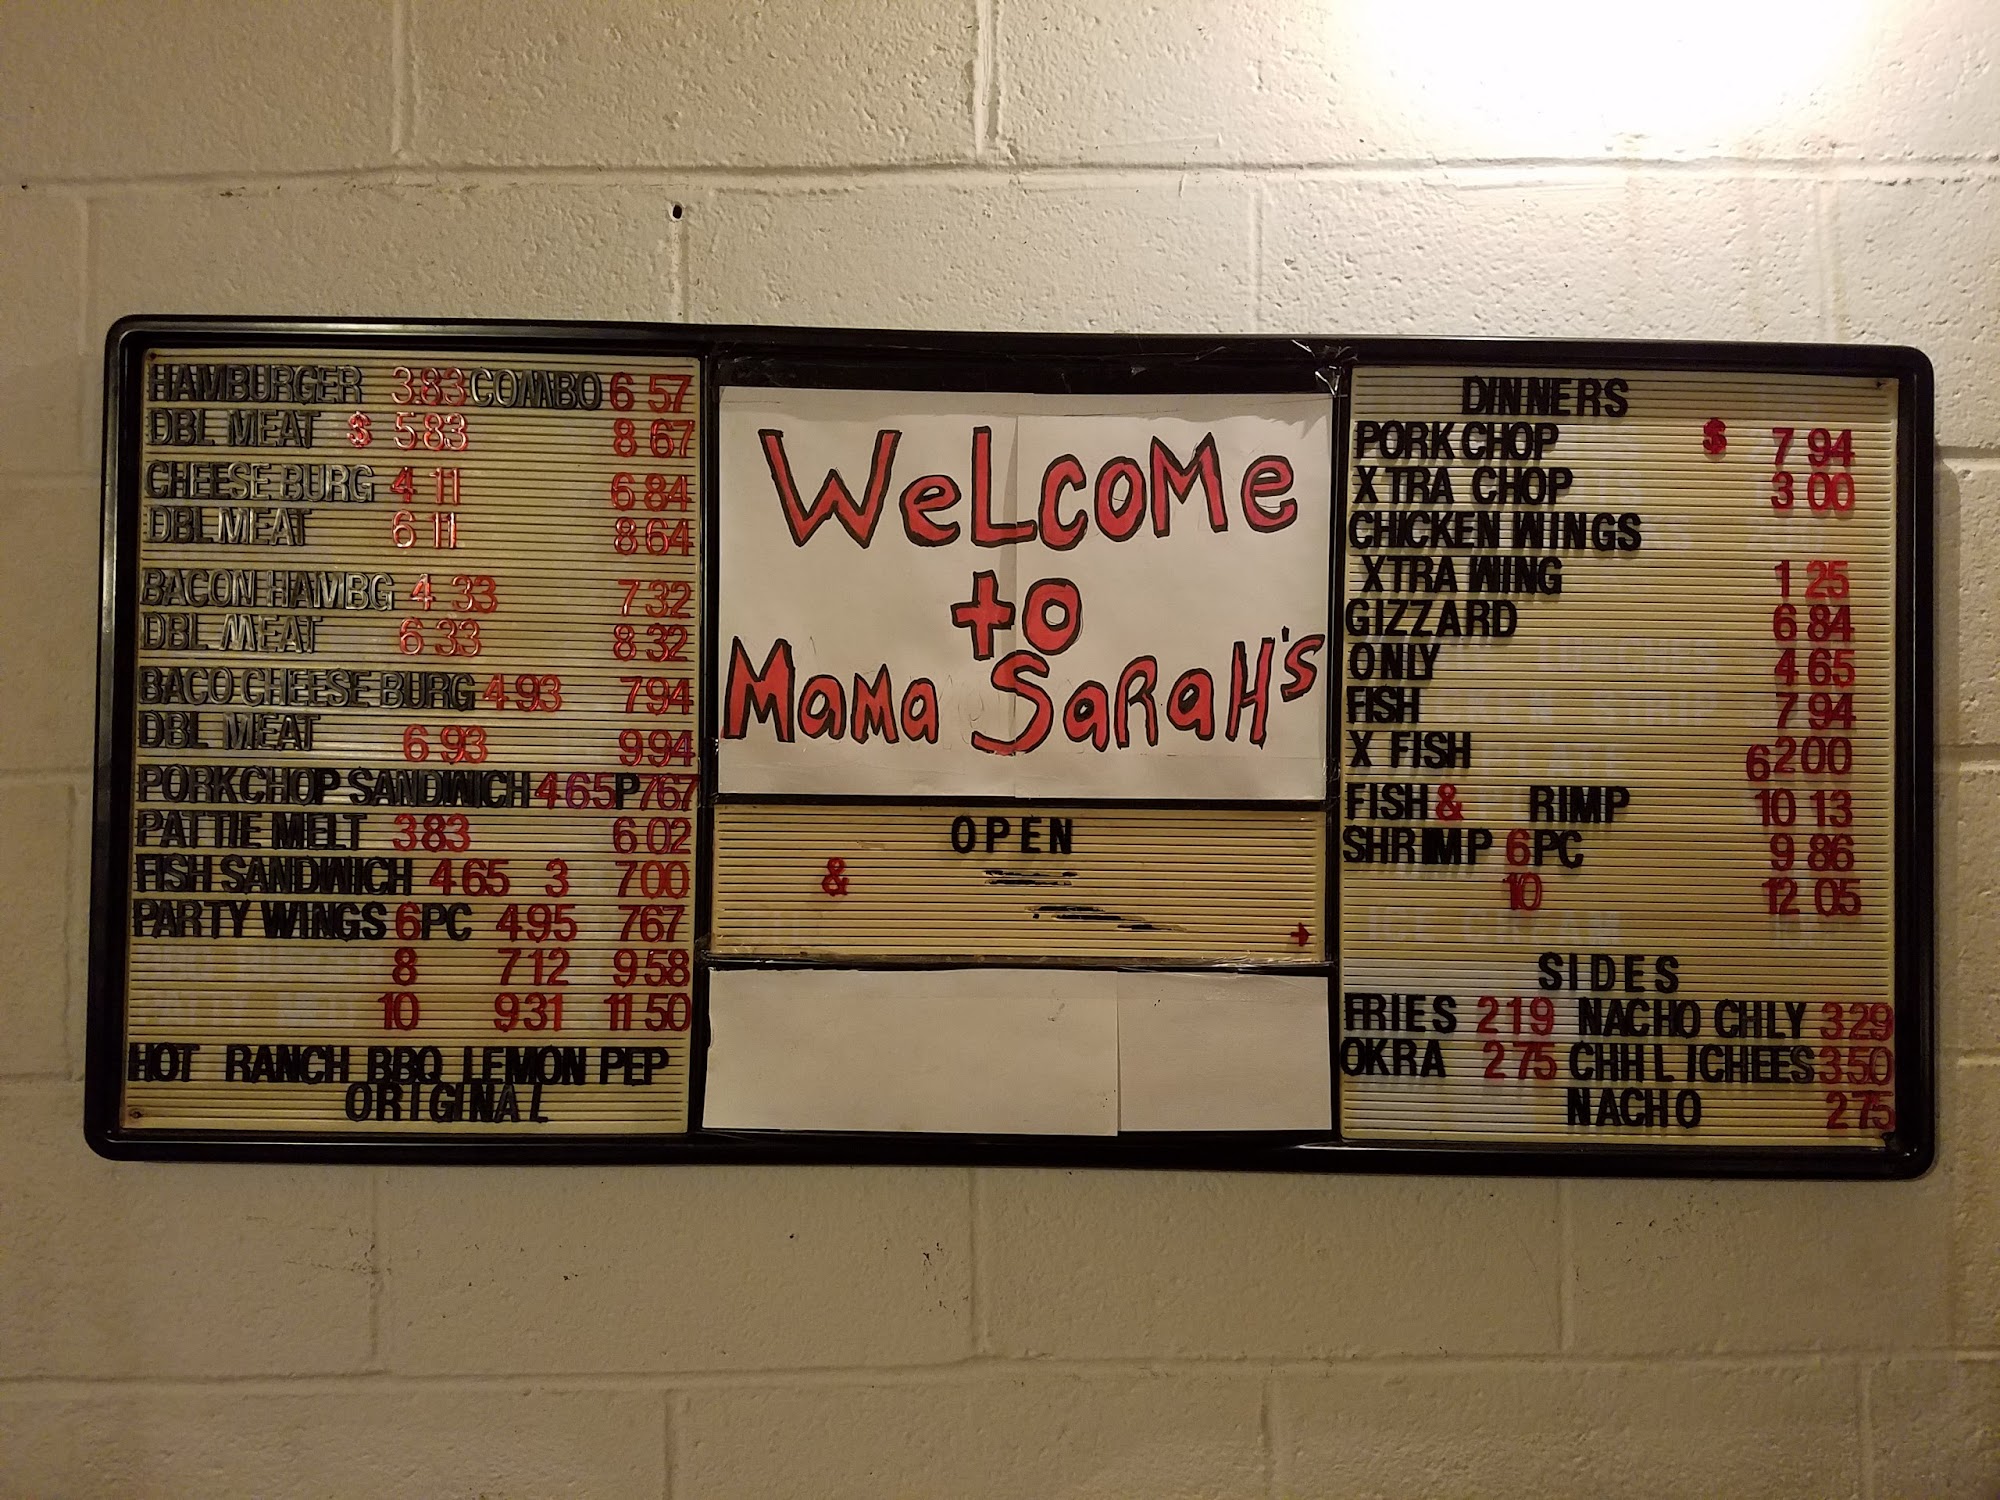 HAMBURGER 3 83 COMBO 6 57
DBL MEAT $ 5 83 8 67
CHEESE BURG 4 11 6 84
DBL MEAT 6 11 8 64
BACON HAMBG 4 33 7 32
DBL MEAT 6 33 8 32
BACO CHEESE BURG 4 93 7 94
DBL MEAT 6 93 9 94
PORKCHOP SANDWICH 4 65 P 7 67
PATTIE MELT 3 83 6 02
FISH SANDWICH 4 65 3 7 00
PARTY WINGS 6 PC 4 95 7 67
8 7 12 9 58
10 9 31 11 50
HOT RANCH BBQ LEMON PEP
ORIGINAL
WeLcoMe
to
MaMa SaRaH's
OPEN
&
DINNERS
PORK CHOP $ 7 94
X TRA CHOP 3 00
CHICKEN WINGS
XTRA WING 1 25
GIZZARD 6 84
ONLY 4 65
FISH 7 94
X FISH 6 2 00
FISH & RIMP 10 13
SHRIMP 6 PC 9 86
10 12 05
SIDES
FRIES 2 19 NACHO CHLY 3 29
OKRA 2 75 CHHLICHEES 3 50
NACHO 2 75